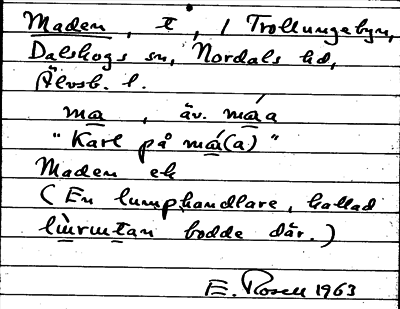 Maden, t, / Trollungebyn,
Dalskogs sn, Nordals hd,
Älvsb. l.
ma, äv. máa
"Karl på má(a)"
Maden ek
(En lumphandlare, kallad
lùrmtan bodde där.)
E. Rosell 1963